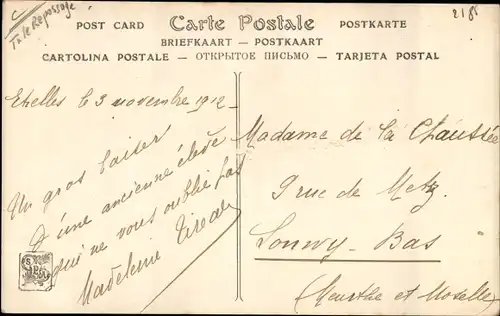 Tale Repassage
2185
POST CARD Carte Postale POSTKARTE
BRIEFKAART — POSTKAART
CARTOLINA POSTALE — ОТКРЫТОЕ ПИСЬМО — TARJETA POSTAL
le 3 novembre 1912
Un gros baiser
d'une ancienne élève
qui ne vous oublie pas
Madeleine
Madame de la Chaussée
9 rue de Metz
Lonwy-Bas
(Meurthe et Moselle